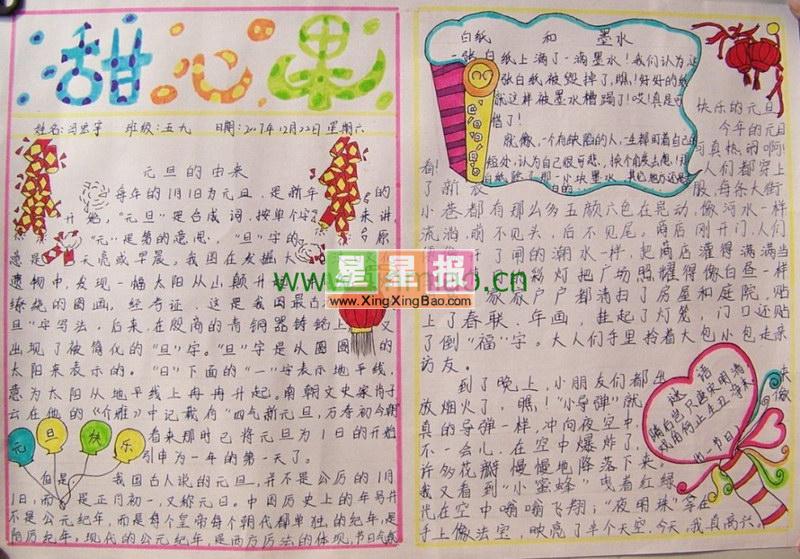 甜心果
班级:五九 日期:2007年12月22日 星期六
元旦的由来
每年的1月1日为元旦,是新年的
开始,"元旦"是合成词,按单个字来讲
"元"是第的意思,"旦"字的原
意是天亮或早晨。我国在发掘大
遗物中,发现一幅太阳从山颠升
缭绕的图画,经考证,这是我国最古
旦"字写法,后来,在殷商的青铜器铸铭上,又
出现了被简化的"旦"字。"旦"字是以圆圆的
太阳来表示的。"日"下面的"一"字表示地平线,
意为太阳从地平线上冉冉升起。南朝文史家肖子
云在他的《介雅》中记载有"四气新元旦,万寿初今朝
看来那时已将元旦为1日的开始
引申为一年的第一天了。
元旦快乐
但是,我国古人说的元旦,并不是公历的1月
1日,而是正月初一,又称元日。中国历史上的年号并
不是公元纪年,而是每个皇帝每个朝代都单独的纪年,是
阴历纪年。现代的公元纪年,是西方历法的体现,
白纸 和 墨水
一张白纸上滴了一滴墨水!我们认为这
张白纸被毁掉了,瞧!好好的纸
就这样被墨水糟蹋了!哎!真是可
惜了!
就像,一个有缺陷的人,一生都盯着自己的
短处,认为自己很可悲,换个角度去想,
快乐的元旦
今年的元旦
可真热闹啊!
看!人们都穿上
了新衣服,每条大街
小巷都有那么多五颜六色在晃动,像河水一样
流淌,前不见头,后不见尾,商店刚开门,人们
了闸的潮水一样,把商店灌得满满当
灯把广场照耀得像白昼一样
家家户户都清扫了房屋和庭院,贴
上了春联、年画,挂起了灯笼,门口还贴
了倒"福"字。大人们手里拎着大包小包走亲
访友。
到了晚上,小朋友们都出
放烟火了,瞧!"小导弹"就
真的导弹一样,冲向夜空中,
不一会儿,在空中爆炸了,
许多花瓣慢慢地降落下来。
我又看到"小蜜蜂"曳着红绿
光在空中嗡嗡飞翔;"夜明珠"拿在
手上像法宝,映亮了半个天空,今天,我真高兴。
谜语
星星报
www.XingXingBao.com
www.
.cn